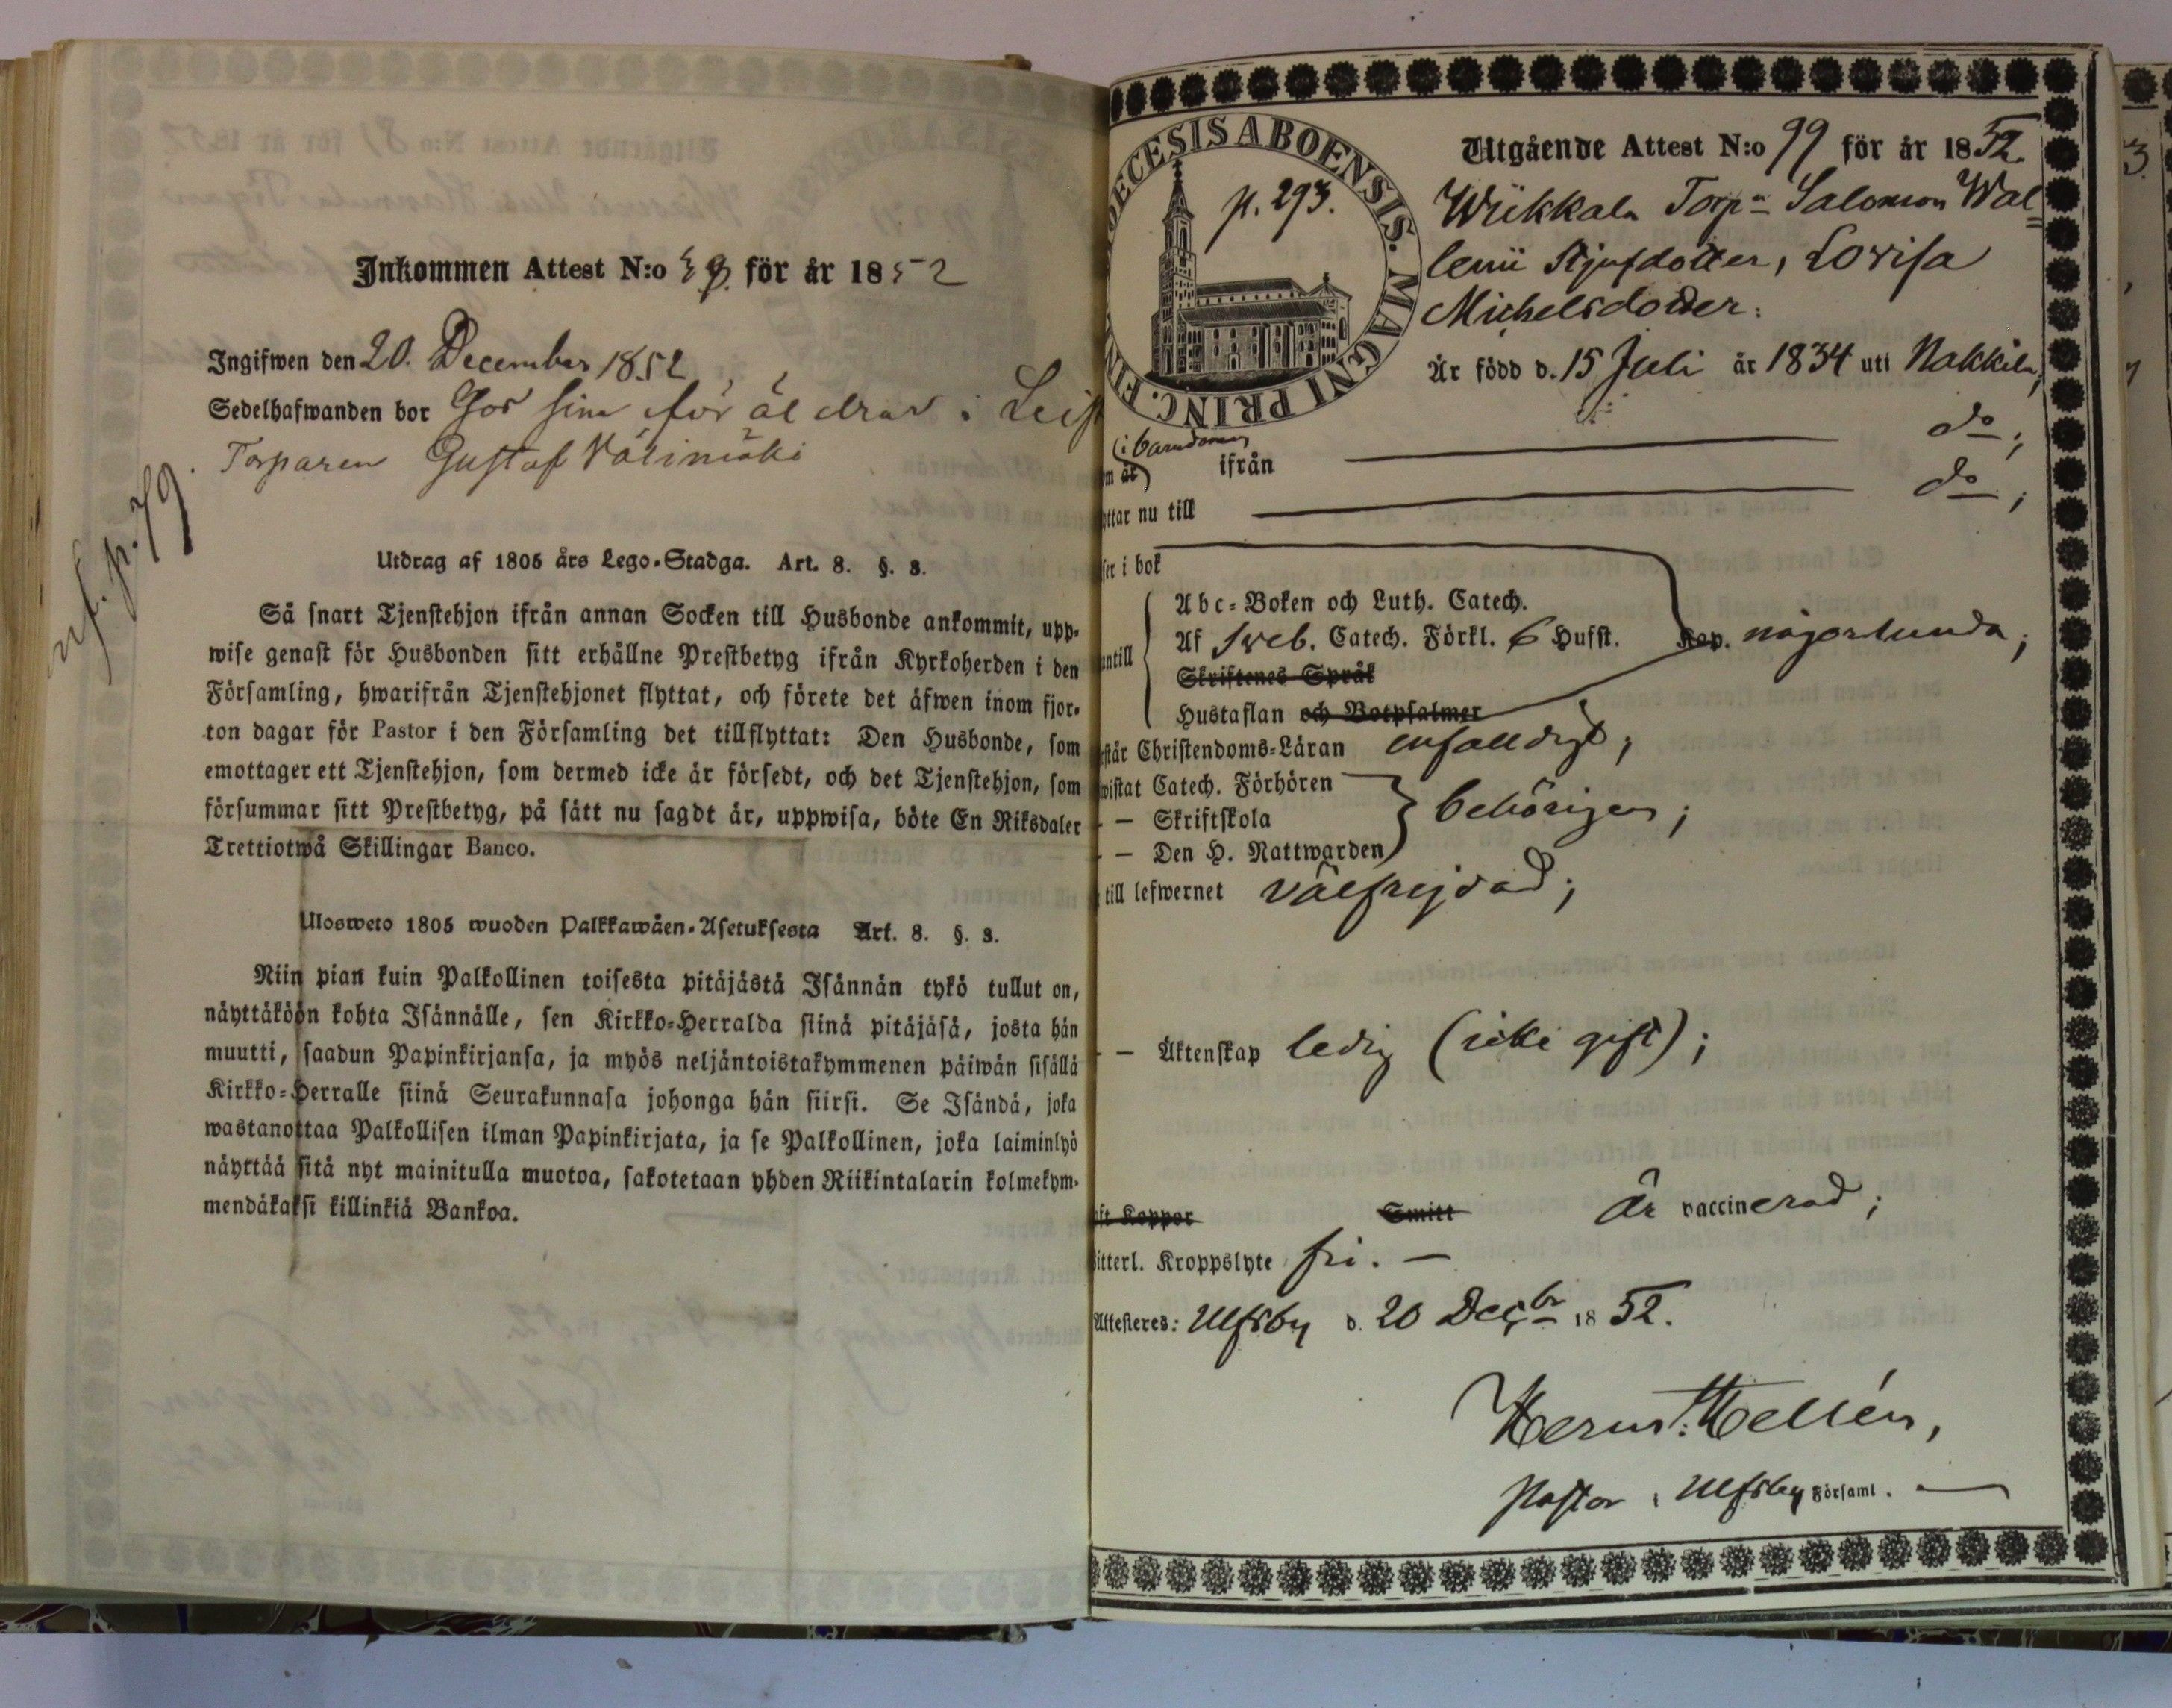 Inkommen Attest N:o för år 1852
Ingifwen den 20. December 1852
Sedelhafwanden bor hos sina föräldrar i Leist
Torparen Gustaf Välimäki
p. 79.
Utdrag af 1805 års Lego-Stadga. Art. 8. §. 3.
Så snart Tjenstehjon ifrån annan Socken till Husbonde ankommit, upp-
wise genast för Husbonden sitt erhållne Prestbetyg ifrån Kyrkoherden i den
Församling, hwarifrån Tjenstehjonet flyttat, och förete det äfwen inom fjor-
ton dagar för Pastor i den Församling det tillflyttat: Den Husbonde, som
emottager ett Tjenstehjon, som dermed icke är försedt, och det Tjenstehjon, som
försummar sitt Prestbetyg, på sätt nu sagdt är, uppwisa, böte En Riksdaler
Trettiotwå Skillingar Banco.
Ulosweto 1805 wuoden Palkkawäen-Asetuksesta Art. 8. §. 3.
Niin pian kuin Palkollinen toisesta pitäjästä Isännän tykö tullut on,
näyttäköön kohta Isännälle, sen Kirkko-Herralda siinä pitäjäsä, josta hän
muutti, saadun Papinkirjansa, ja myös neljäntoistakymmenen päiwän sisällä
Kirkko-Herralle siinä Seurakunnasa johonga hän siirsi. Se Isändä, joka
wastanottaa Palkollisen ilman Papinkirjata, ja se Palkollinen, joka laiminlyö
näyttää sitä nyt mainitulla muotoa, sakotetaan yhden Riikintalarin kolmekym-
mendäkaksi killinkiä Bankoa.
DECESIS ABOENSIS. MAGNI PRINC. FIN
p. 293.
Utgående Attest N:o 99 för år 1852.
Wiikkala Torpn Salomon Wal=
lenii Stjufdotter, Lovisa
Michelsdotter:
Är född d. 15 Juli år 1834 uti Nakkila,
(i barndomen
m år) ifrån do;
yttar nu till do;
ser i bok
Abc-Boken och Luth. Catech.
antill Af Sveb. Catech. Förkl. 6 Hufst. Kap. någorlunda;
Skriftenes Språk
Hustaflan och Botpsalmer
estår Christendoms-Läran enfaldigt;
wistat Catech. Förhören
— Skriftskola behörigen;
— Den H. Nattwarden
till lefwernet välfrejdad;
— Äktenskap ledig (icke gift);
ft Koppor Smitt Är vaccinerad;
itterl. Kroppslyte fri. —
Attesteres: Ulfsby d. 20 Decbr 1852.
Herm: Hellén,
Pastor i Ulfsby Församl. —